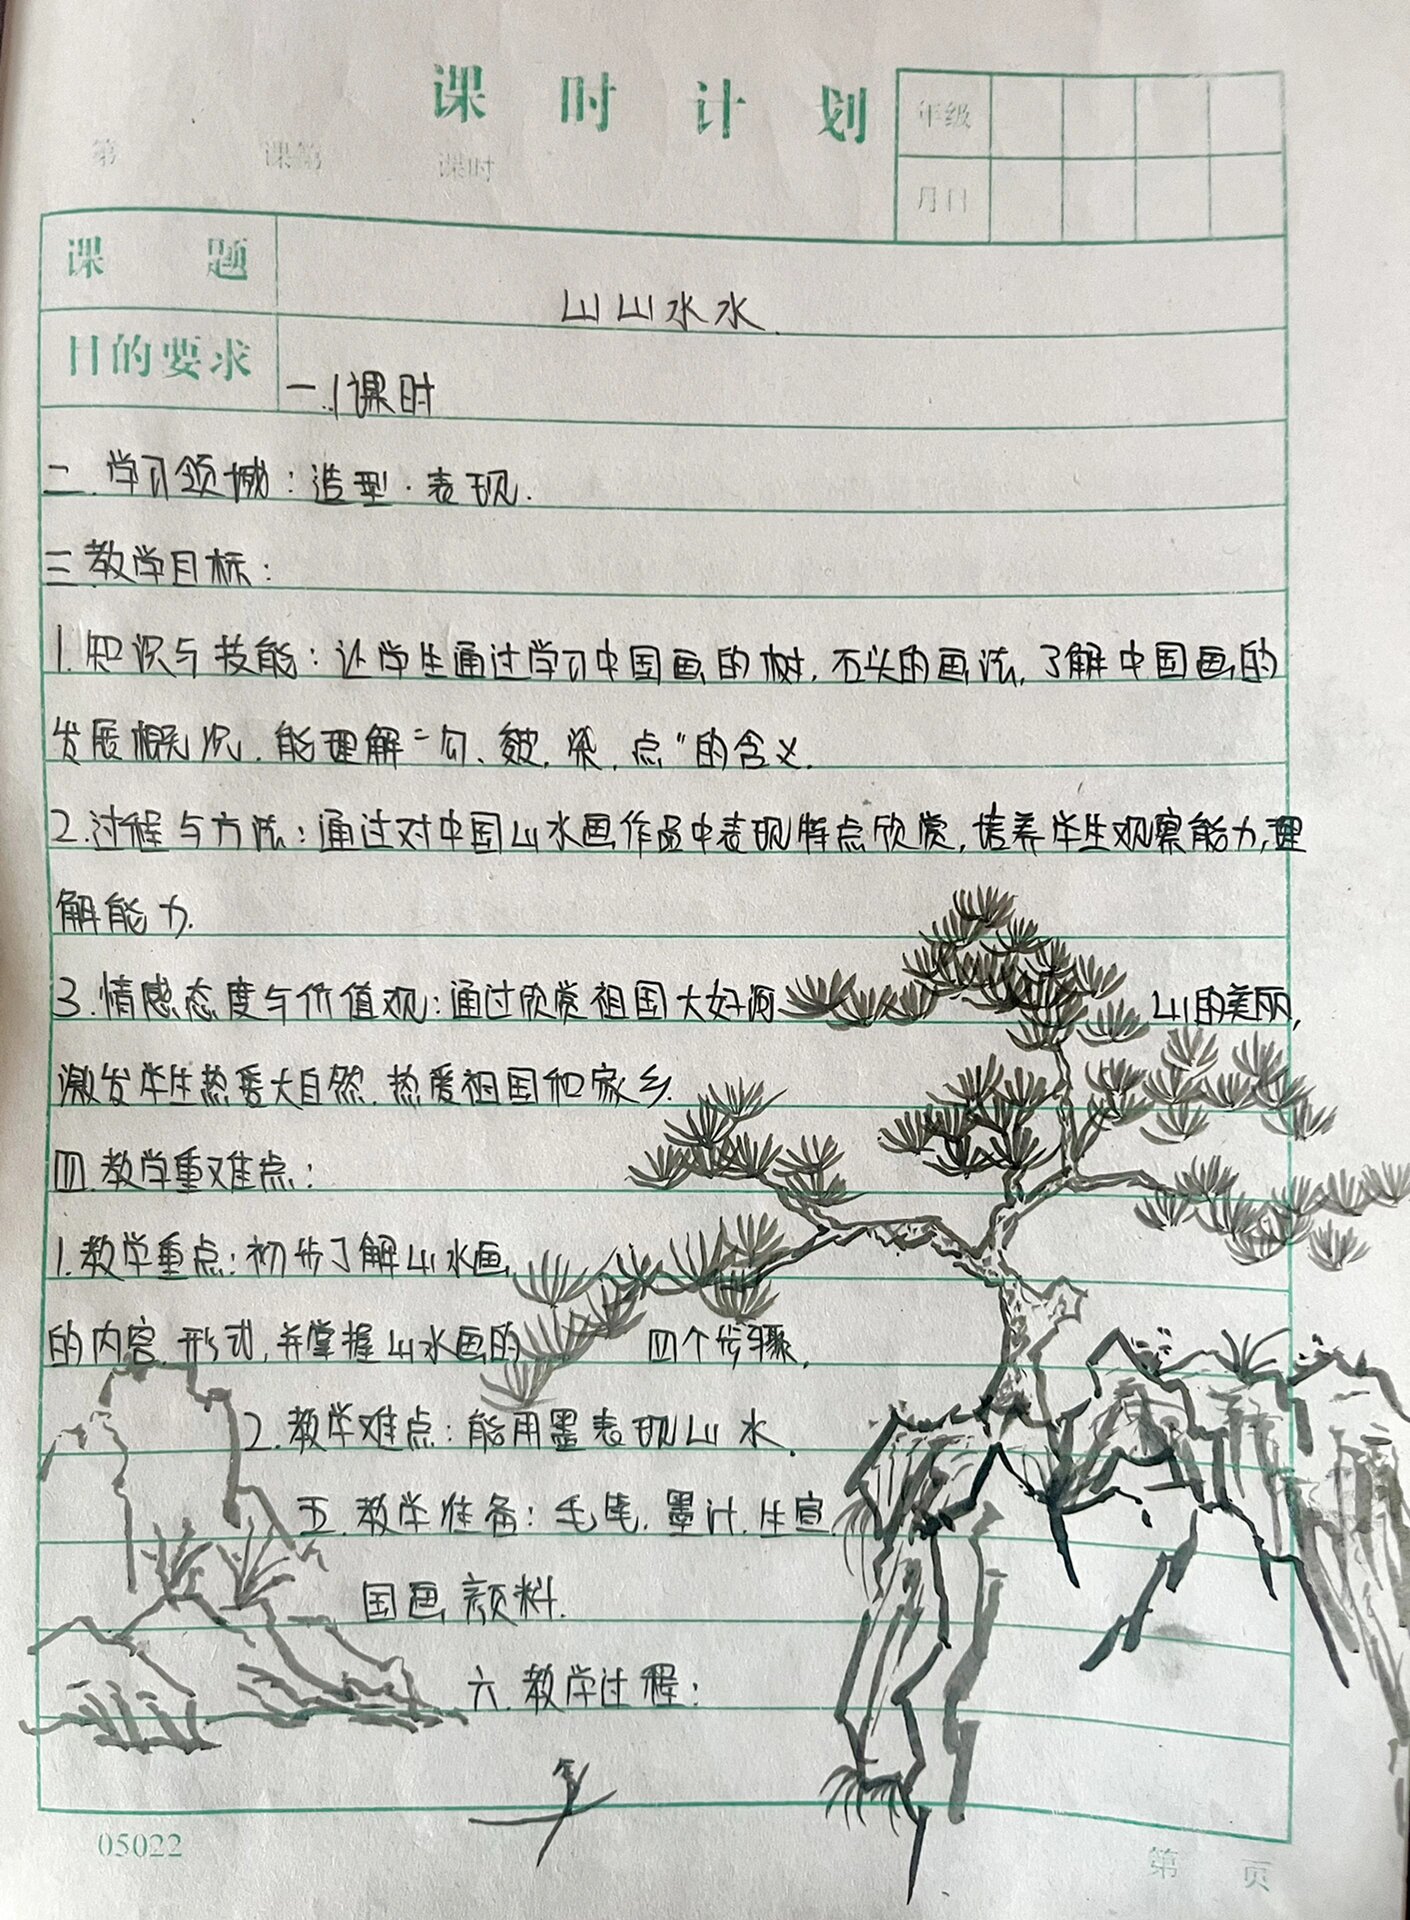 课时计划
年级
第 课第 课时
月日
课题
山山水水.
目的要求
一.1课时
二.学习领域：造型·表现.
三.教学目标：
1.知识与技能：让学生通过学习中国画的树,石头的画法,了解中国画的
发展概况,能理解“勾、皴,染,点”的含义.
2.过程与方法：通过对中国山水画作品中表现特点欣赏,培养学生观察能力,理
解能力.
3.情感态度与价值观：通过欣赏祖国大好河山的美丽,
激发学生热爱大自然,热爱祖国和家乡.
四.教学重难点：
1.教学重点：初步了解山水画
的内容,形式,并掌握山水画的四个步骤,
2.教学难点：能用墨表现山水.
五.教学准备：毛笔,墨汁,生宣
国画颜料.
六.教学过程：
05022
第 页